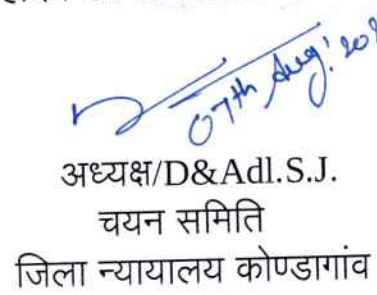 07th Aug! 202
अध्यक्ष/D&Adl.S.J.
चयन समिति
जिला न्यायालय कोण्डागांव